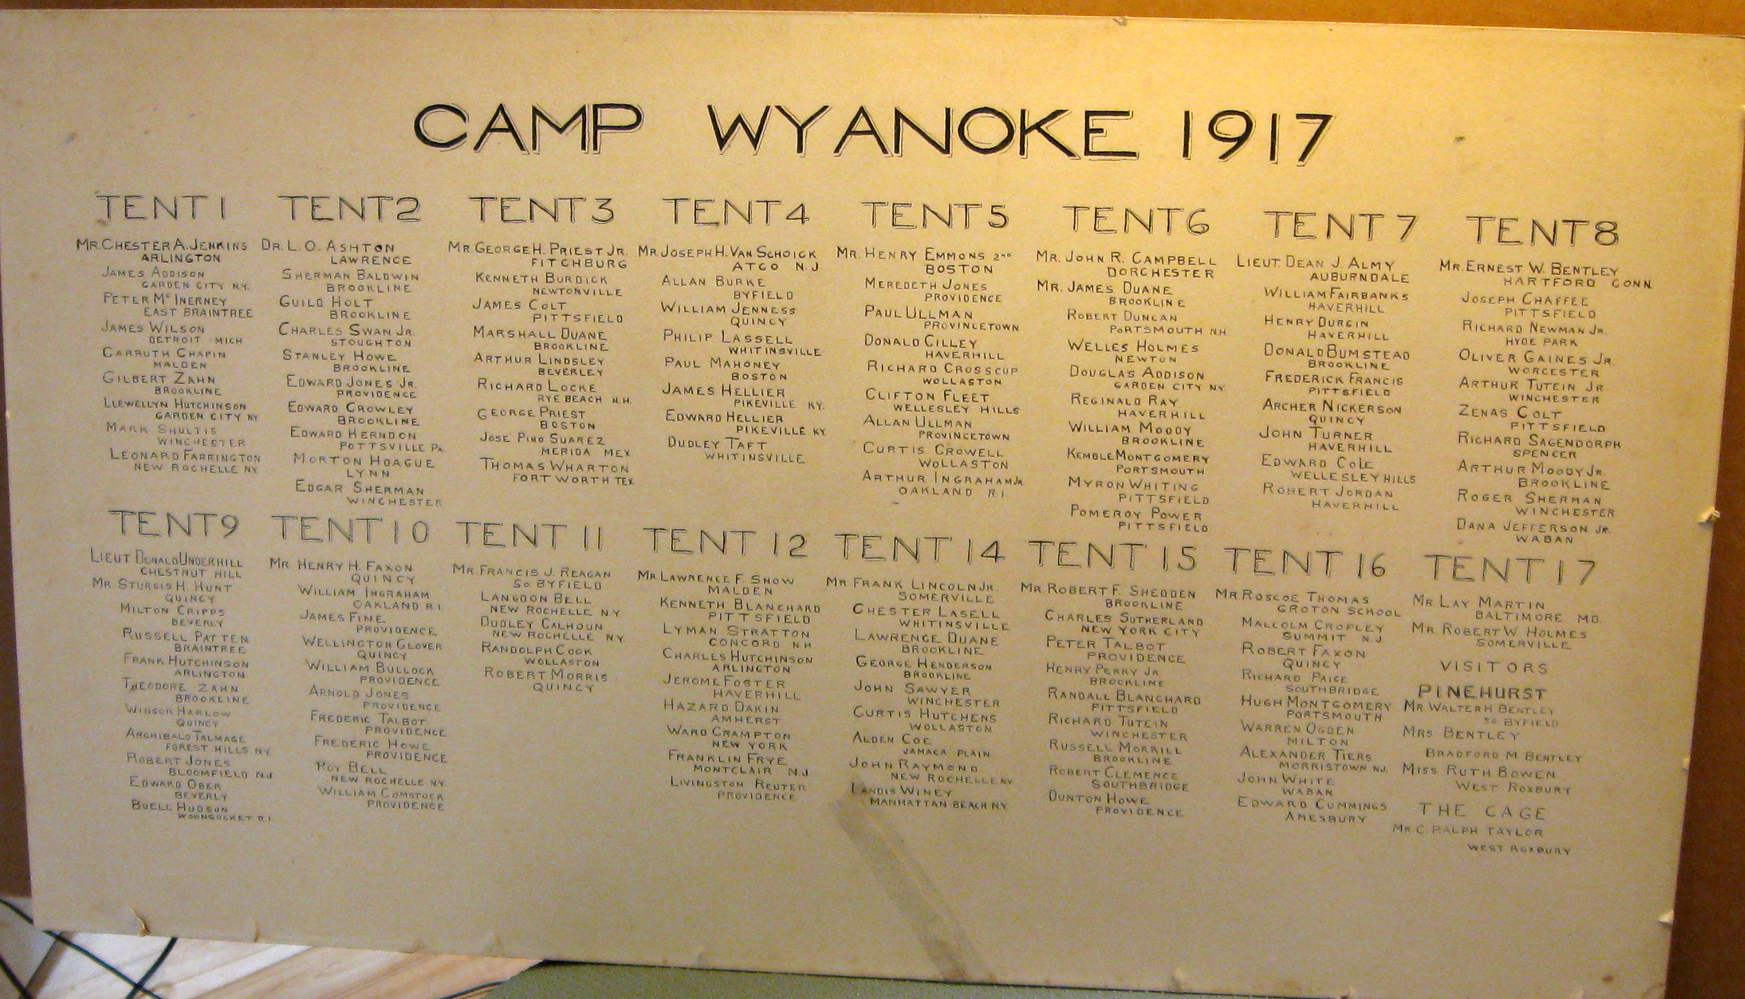 CAMP WYANOKE 1917
TENT 1
MR. CHESTER A. JENKINS
ARLINGTON
JAMES ADDISON
GARDEN CITY N.Y.
PETER McINERNEY
EAST BRAINTREE
JAMES WILSON
DETROIT MICH
CARRUTH CHAPIN
MALDEN
GILBERT ZAHN
BROOKLINE
LLEWELLYN HUTCHINSON
GARDEN CITY NY
MARK SHULTIS
WINCHESTER
LEONARD FARRINGTON
NEW ROCHELLE NY
TENT 2
DR. L. O. ASHTON
LAWRENCE
SHERMAN BALDWIN
BROOKLINE
GUILD HOLT
BROOKLINE
CHARLES SWAN JR.
STOUGHTON
STANLEY HOWE
BROOKLINE
EDWARD JONES JR.
PROVIDENCE
EDWARD CROWLEY
BROOKLINE
EDWARD HERNDON
POTTSVILLE PA
MORTON HOAGUE
LYNN
EDGAR SHERMAN
WINCHESTER
TENT 3
MR. GEORGE H. PRIEST JR.
FITCHBURG
KENNETH BURDICK
NEWTONVILLE
JAMES COLT
PITTSFIELD
MARSHALL DUANE
BROOKLINE
ARTHUR LINDSLEY
BEVERLEY
RICHARD LOCKE
RYE BEACH N.H.
GEORGE PRIEST
BOSTON
JOSE PINO SUAREZ
MERIDA MEX
THOMAS WHARTON
FORT WORTH TEX
TENT 4
MR. JOSEPH H. VAN SCHOICK
ATCO N J
ALLAN BURKE
BYFIELD
WILLIAM JENNESS
QUINCY
PHILIP LASSELL
WHITINSVILLE
PAUL MAHONEY
BOSTON
JAMES HELLIER
PIKEVILLE KY.
EDWARD HELLIER
PIKEVILLE KY
DUDLEY TAFT
WHITINSVILLE
TENT 5
MR. HENRY EMMONS 2ND
BOSTON
MEREDETH JONES
PROVIDENCE
PAUL ULLMAN
PROVINCETOWN
DONALD CILLEY
HAVERHILL
RICHARD CROSSCUP
WOLLASTON
CLIFTON FLEET
WELLESLEY HILLS
ALLAN ULLMAN
PROVINCETOWN
CURTIS CROWELL
WOLLASTON
ARTHUR INGRAHAM JR
OAKLAND R I
TENT 6
MR. JOHN R. CAMPBELL
DORCHESTER
MR. JAMES DUANE
BROOKLINE
ROBERT DUNCAN
PORTSMOUTH N.H.
WELLES HOLMES
NEWTON
DOUGLAS ADDISON
GARDEN CITY NY
REGINALD RAY
HAVERHILL
WILLIAM MOODY
BROOKLINE
KEMBLE MONTGOMERY
PORTSMOUTH
MYRON WHITING
PITTSFIELD
POMEROY POWER
PITTSFIELD
TENT 7
LIEUT. DEAN J. ALMY
AUBURNDALE
WILLIAM FAIRBANKS
HAVERHILL
HENRY DURGIN
HAVERHILL
DONALD BUMSTEAD
BROOKLINE
FREDERICK FRANCIS
PITTSFIELD
ARCHER NICKERSON
QUINCY
JOHN TURNER
HAVERHILL
EDWARD COLE
WELLESLEY HILLS
ROBERT JORDAN
HAVERHILL
TENT 8
MR. ERNEST W. BENTLEY
HARTFORD CONN.
JOSEPH CHAFFEE
PITTSFIELD
RICHARD NEWMAN JR.
HYDE PARK
OLIVER GAINES JR.
WORCESTER
ARTHUR TUTEIN JR.
WINCHESTER
ZENAS COLT
PITTSFIELD
RICHARD SAGENDORPH
SPENCER
ARTHUR MOODY JR.
BROOKLINE
ROGER SHERMAN
WINCHESTER
DANA JEFFERSON JR.
WABAN
TENT 9
LIEUT DONALD UNDERHILL
CHESTNUT HILL
MR STURGIS H. HUNT
QUINCY
MILTON CRIPPS
BEVERLY
RUSSELL PATTEN
BRAINTREE
FRANK HUTCHINSON
ARLINGTON
THEODORE ZAHN
BROOKLINE
WINSOR HARLOW
QUINCY
ARCHIBALD TALMAGE
FOREST HILLS NY
ROBERT JONES
BLOOMFIELD N.J
EDWARD OBER
BEVERLY
BUELL HUDSON
WOONSOCKET R I
TENT 10
MR. HENRY H. FAXON
QUINCY
WILLIAM INGRAHAM
OAKLAND R.I
JAMES FINE
PROVIDENCE
WELLINGTON GLOVER
QUINCY
WILLIAM BULLOCK
PROVIDENCE
ARNOLD JONES
PROVIDENCE
FREDERIC TALBOT
PROVIDENCE
FREDERIC HOWE
PROVIDENCE
ROY BELL
NEW ROCHELLE NY
WILLIAM COMSTOCK
PROVIDENCE
TENT 11
MR. FRANCIS J. REAGAN
SO BYFIELD
LANGDON BELL
NEW ROCHELLE N.Y
DUDLEY CALHOUN
NEW ROCHELLE NY.
RANDOLPH COOK
WOLLASTON
ROBERT MORRIS
QUINCY
TENT 12
MR LAWRENCE F. SNOW
MALDEN
KENNETH BLANCHARD
PITTSFIELD
LYMAN STRATTON
CONCORD N H
CHARLES HUTCHINSON
ARLINGTON
JEROME FOSTER
HAVERHILL
HAZARD DAKIN
AMHERST
WARD CRAMPTON
NEW YORK
FRANKLIN FRYE
MONTCLAIR N J
LIVINGSTON REUTER
PROVIDENCE
TENT 14
MR FRANK LINCOLN JR
SOMERVILLE
CHESTER LASELL
WHITINSVILLE
LAWRENCE DUANE
BROOKLINE
GEORGE HENDERSON
BROOKLINE
JOHN SAWYER
WINCHESTER
CURTIS HUTCHENS
WOLLASTON
ALDEN COE
JAMACA PLAIN
JOHN RAYMOND
NEW ROCHELLE NY
LANDIS WINEY
MANHATTAN BEACH NY.
TENT 15
MR ROBERT F. SHEDDEN
BROOKLINE
CHARLES SUTHERLAND
NEW YORK CITY
PETER TALBOT
PROVIDENCE
HENRY PERRY JR
BROOKLINE
RANDALL BLANCHARD
PITTSFIELD
RICHARD TUTEIN
WINCHESTER
RUSSELL MORRILL
BROOKLINE
ROBERT CLEMENCE
SOUTHBRIDGE
DUNTON HOWE
PROVIDENCE
TENT 16
MR ROSCOE THOMAS
GROTON SCHOOL
MALCOLM CROPLEY
SUMMIT N.J
ROBERT FAXON
QUINCY
RICHARD PAIGE
SOUTHBRIDGE
HUGH MONTGOMERY
PORTSMOUTH
WARREN OGDEN
MILTON
ALEXANDER TIERS
MORRISTOWN NJ.
JOHN WHITE
WABAN
EDWARD CUMMINGS
AMESBURY
TENT 17
MR LAY MARTIN
BALTIMORE MD.
MR. ROBERT W HOLMES
SOMERVILLE
VISITORS
PINEHURST
MR. WALTER H BENTLEY
SO BYFIELD
MRS BENTLEY
BRADFORD M BENTLEY
MISS RUTH BOWEN
WEST ROXBURY
THE CAGE
MR C. RALPH TAYLOR
WEST ROXBURY